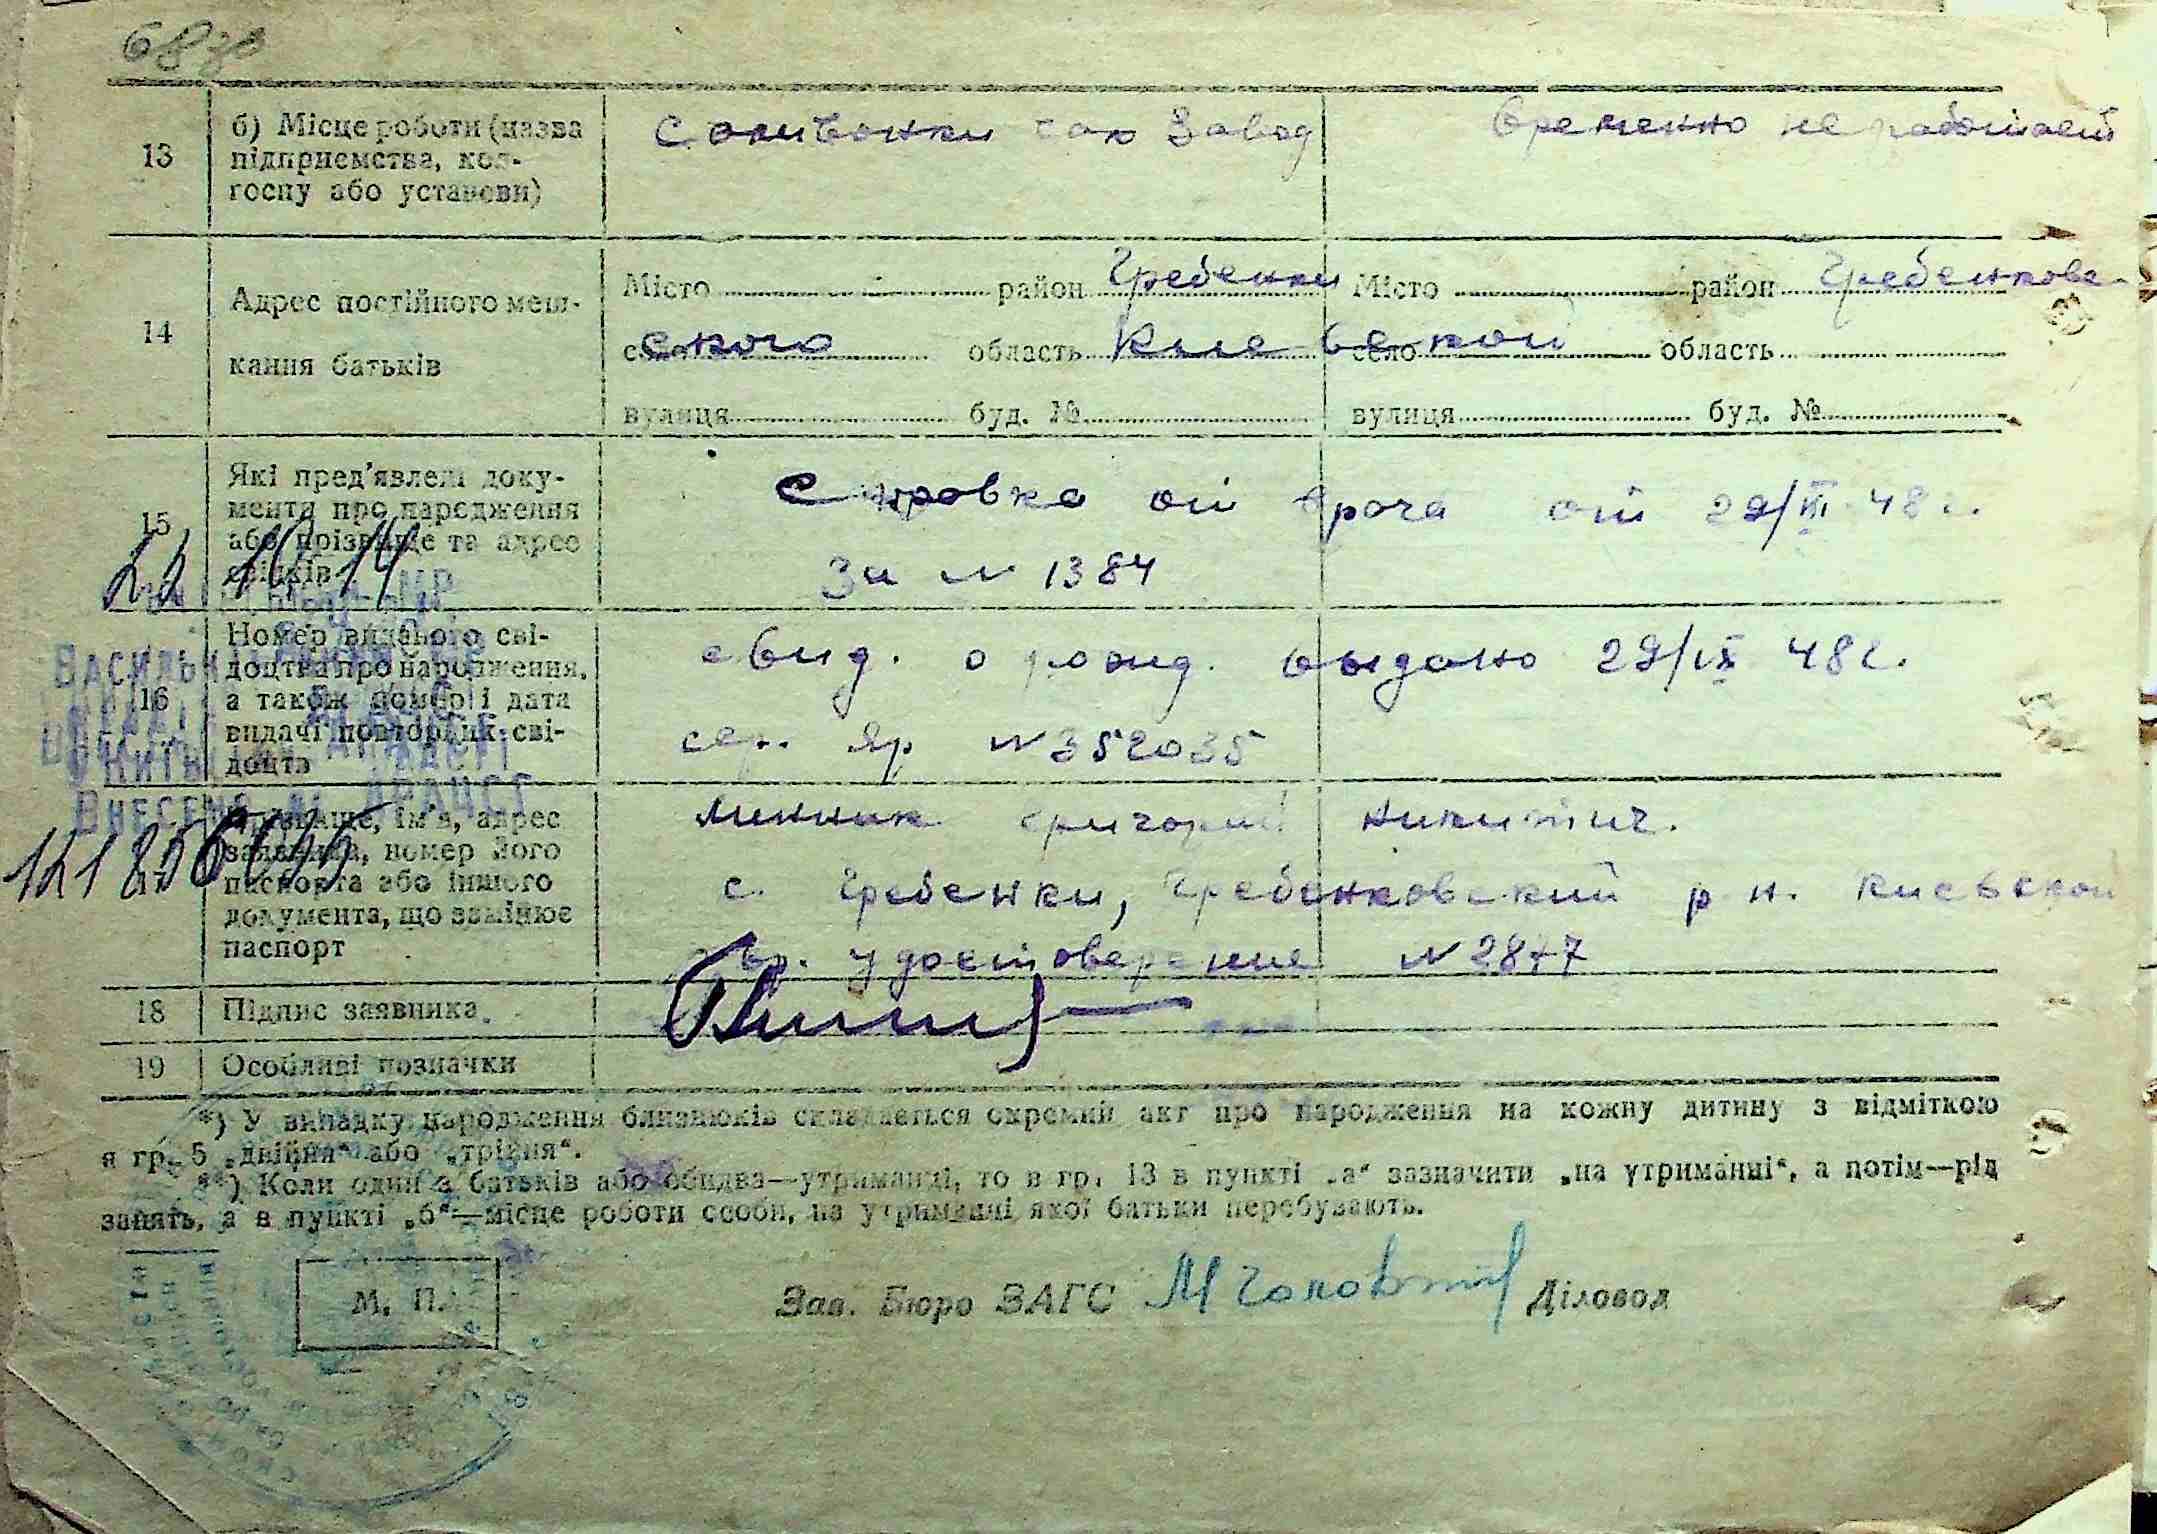 13
б) Місце роботи (назва
підприємства, кол-
госпу або установи)
Саливонки сах Завод
временно не работает
14
Адрес постійного меш-
кання батьків
Місто район Гребенки
ского область Киевской
вулиця буд. №
Місто район Гребенковс-
село область
вулиця буд. №
15
Які пред'явлені доку-
менти про народження
або прізвище та адрес
свідків
Справка от врача от 29/IX 48 г.
За N 1384
16
Номер виданого сві-
доцтва про народження,
а також номер і дата
видачі повторних сві-
доцтв
свид. о рожд. выдано 29/IX 48 г.
сер. яр N 352035
Прізвище, ім'я, адрес
заявника, номер його
паспорта або іншого
документа, що замінює
паспорт
Линник Григорий Никитич.
с. Гребенки, Гребенковский р н. Киевской
удостоверение
18
Підпис заявника
19
Особливі позначки
*) У випадку народження близнюків складається окремий акт про народження на кожну дитину з відміткою
в гр. 5 „двійня“ або „трійня“.
**) Коли один з батьків або обидва—утриманці, то в гр. 13 в пункті „а“ зазначити „на утриманні“, а потім—рід
занять, а в пункті „б“—місце роботи особи, на утриманні якої батьки перебувають.
М. П.
Зав. Бюро ЗАГС
Діловод